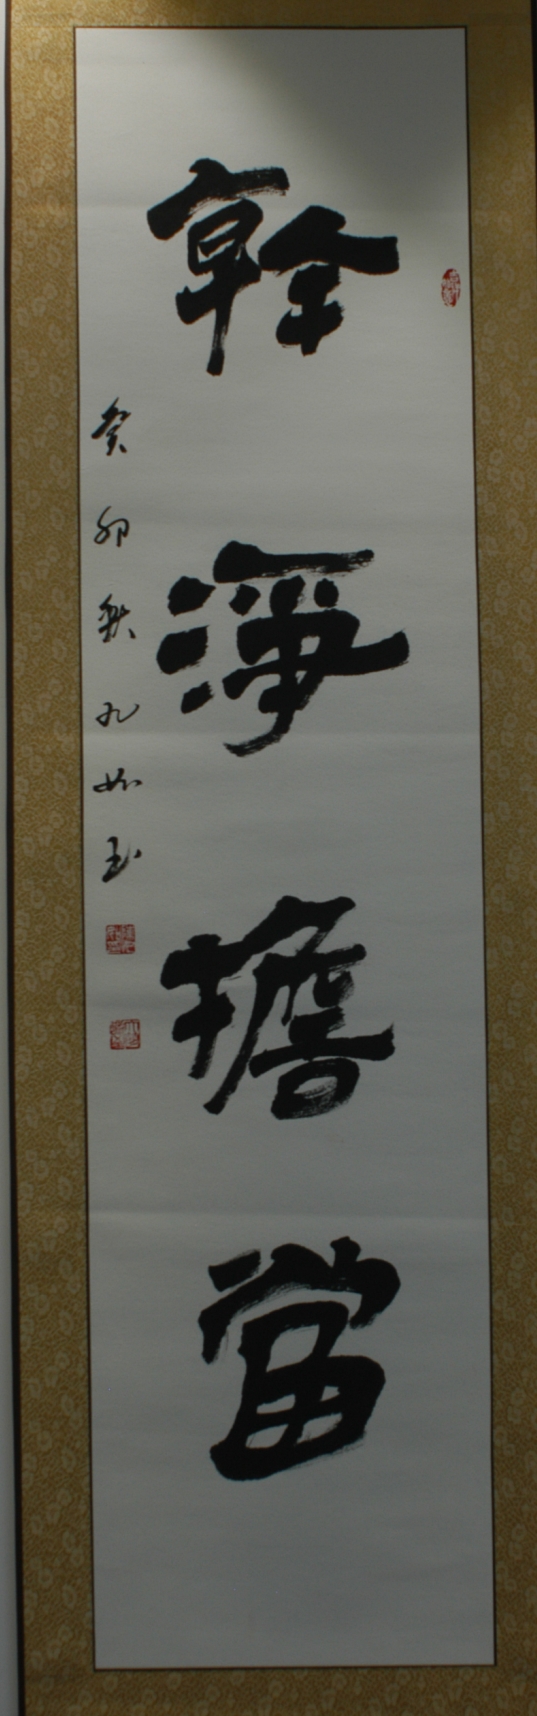 幹淨擔當
癸卯秋九如玉